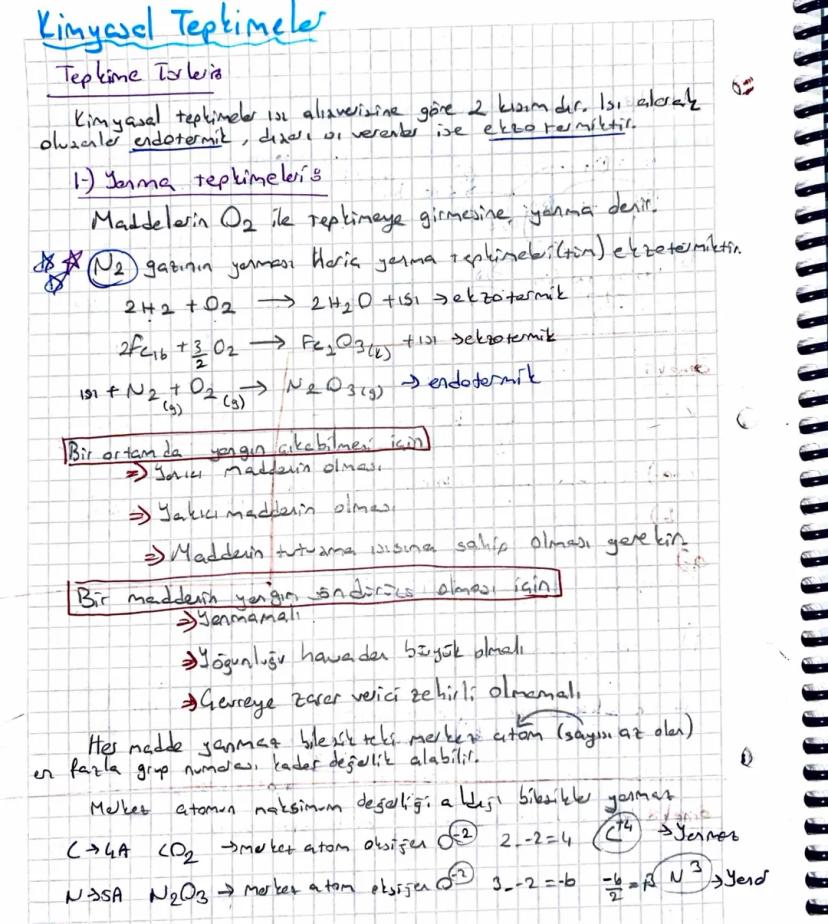 Kimyasal Tepkimeler
Tepkime Türleri:
Kimyasal tepkimeler ısı alışverişine göre 2 kısımdır. Isı alarak
oluşanlar endotermik, dışarı ısı verenler ise ekzotermiktir.
1-) Yanma tepkimeleri:
Maddelerin O2 ile tepkimeye girmesine yanma denir.
N2 gazının yanması Hariç yanma tepkimeleri (tüm) ekzotermiktir.
2H2 + O2 → 2H2O + ısı → ekzotermik
2Fe(k) + 3/2 O2 → Fe2O3(k) + ısı → ekzotermik
ısı + N2(g) + O2(g) → N2O3(g) → endotermik
Bir ortamda yangın çıkabilmesi için
⇒ Yanıcı maddenin olması
⇒ Yakıcı maddenin olması
⇒ Maddenin tutuşma ısısına sahip olması gerekir.
Bir maddenin yangın söndürücü olması için
⇒ Yanmamalı
⇒ Yoğunluğu havadan büyük olmalı
⇒ Çevreye zarar verici zehirli olmamalı
Her madde yanmaz bileşikteki merkez atom (sayısı az olan)
en fazla grup numarası kadar değerlik alabilir.
Merkez atomun maksimum değerliği aldığı bileşikler yanmaz
C → 4A CO2 → merkez atom oksijen O-2 2.-2=4 C+4 → Yanmaz
N → 5A N2O3 → merkez atom oksijen O-2 3.-2=-6 -6/2=3 N3 → Yanar